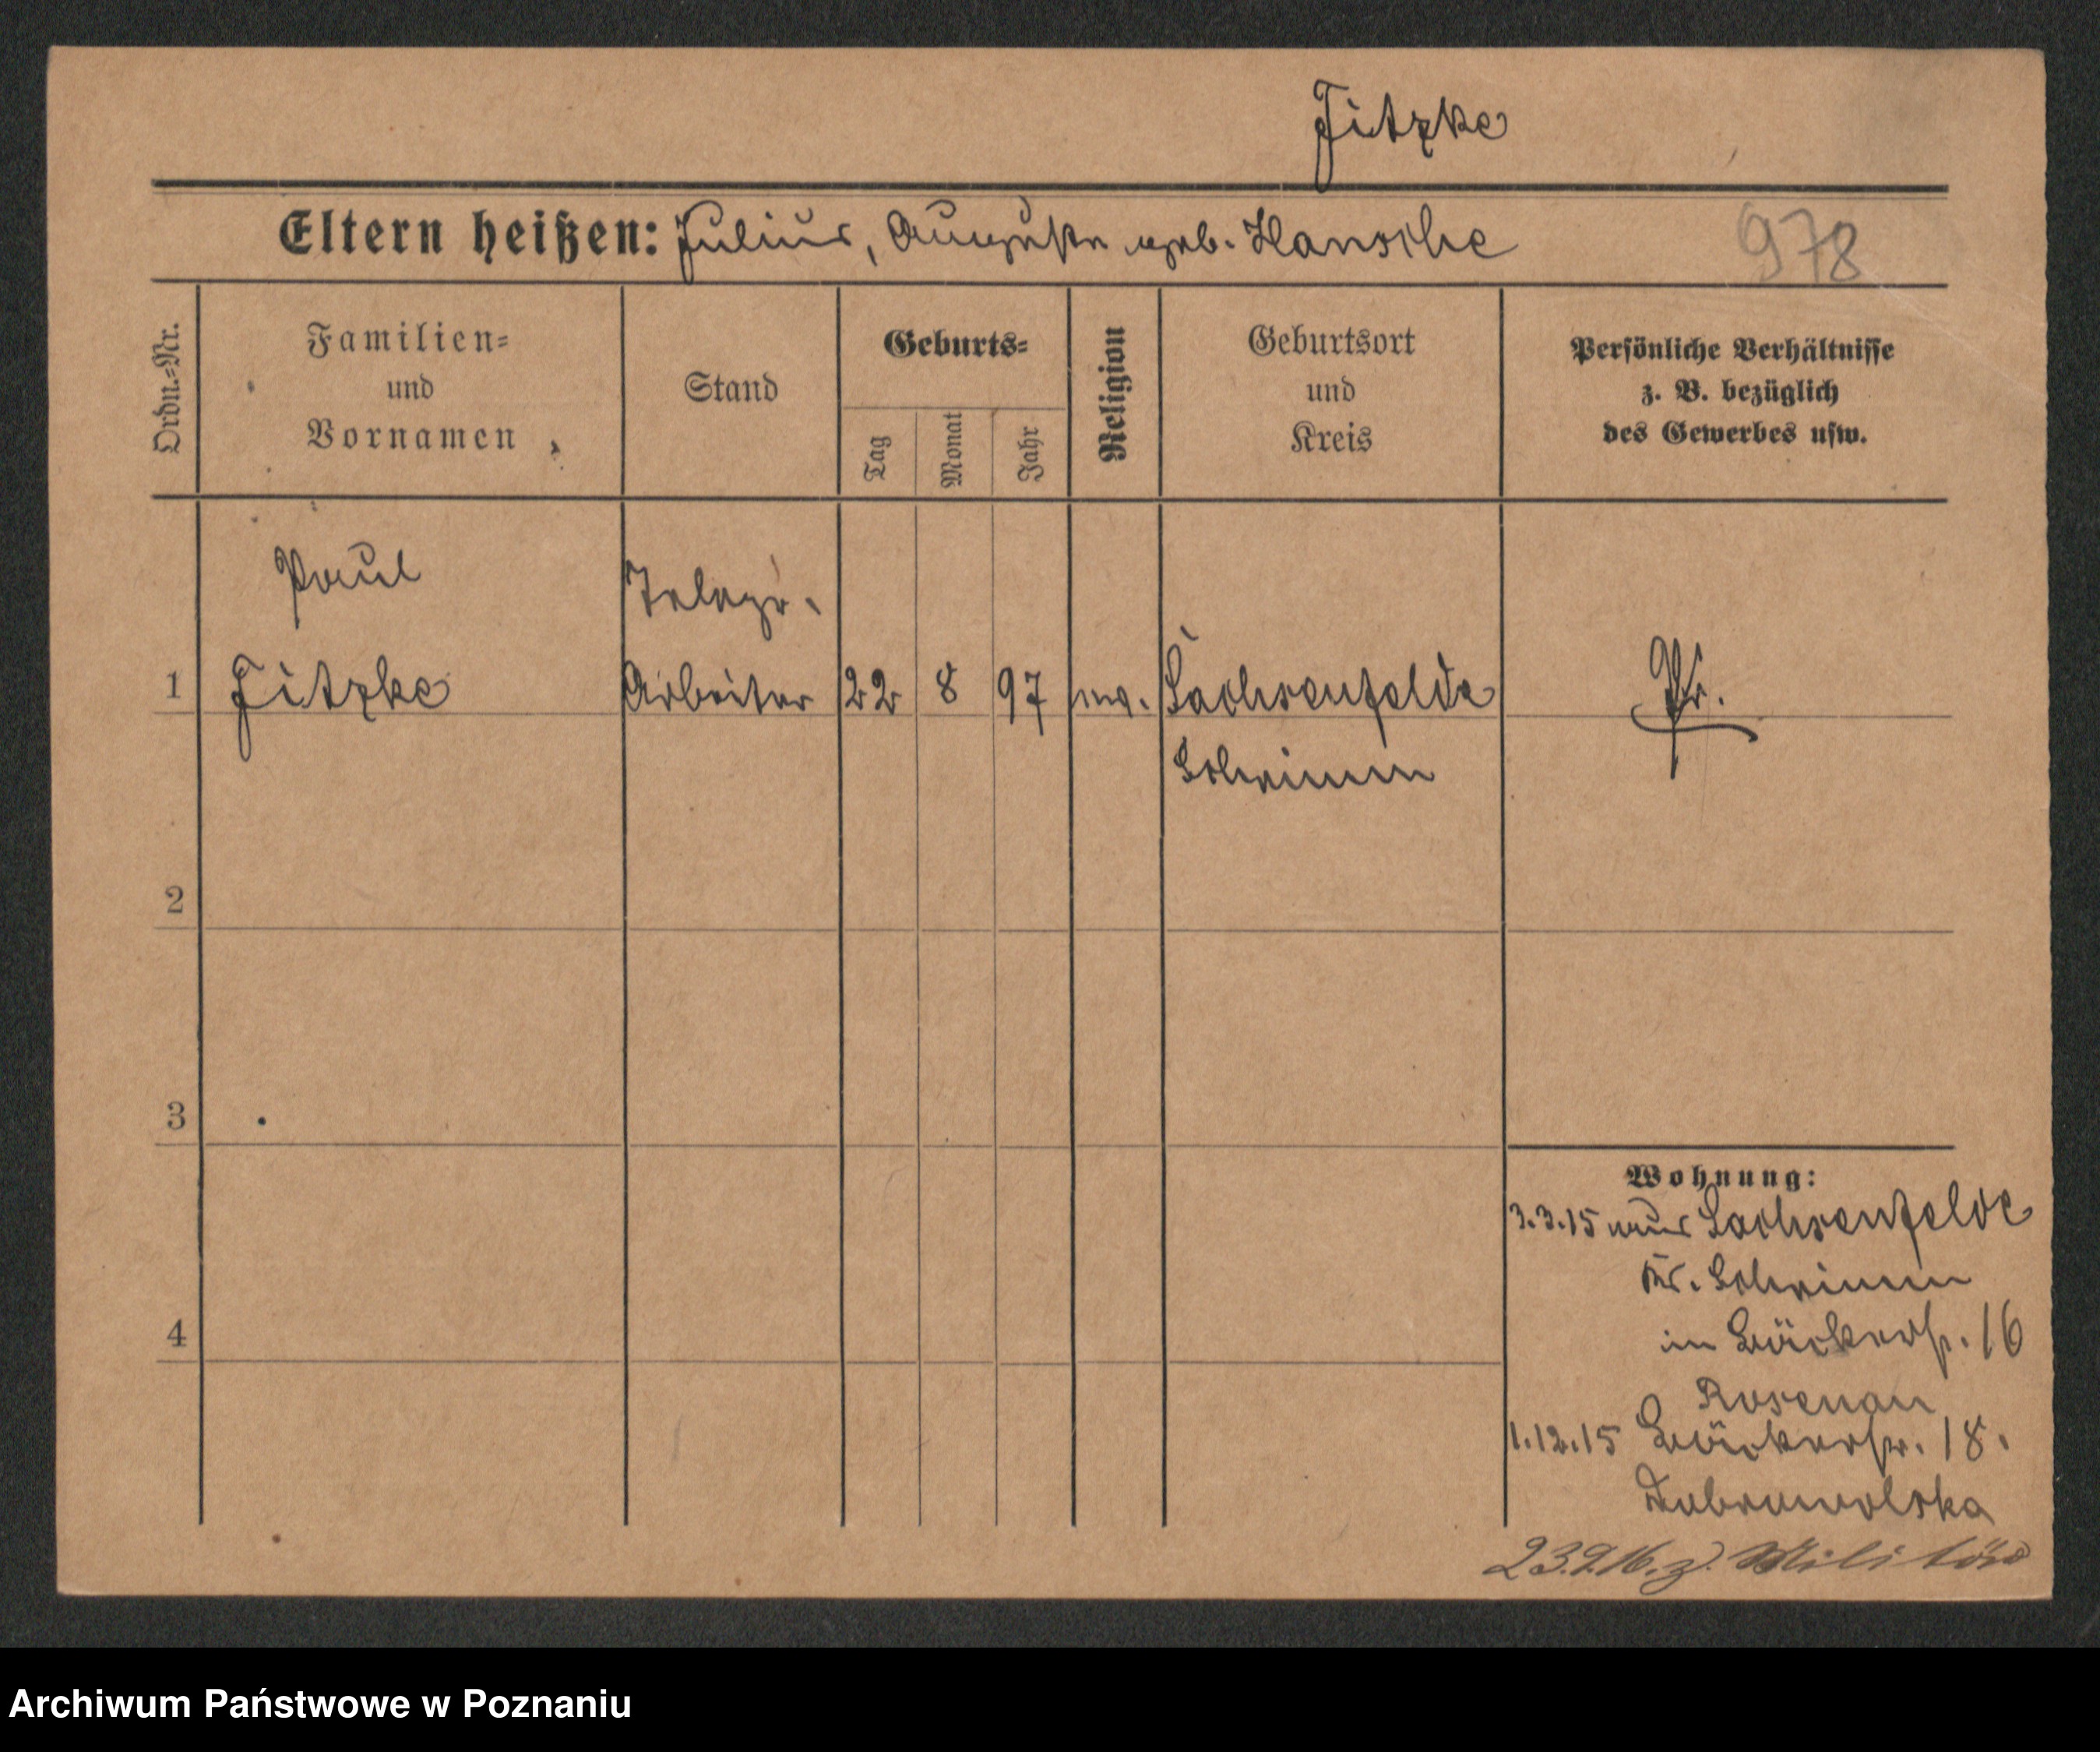 Fitzke
Eltern heißen: Julius, Auguste geb. Hansche
978
Ordn.-Nr.
Familien-
und
Vornamen
Stand
Geburts-
Tag
Monat
Jahr
Religion
Geburtsort
und
Kreis
Persönliche Verhältnisse
z. B. bezüglich
des Gewerbes usw.
Paul
Telegr.
1 Fitzke Arbeiter 22 8 97 ev. Sachsenfelde Pr.
Schrimm
2
3
4
Wohnung:
3.3.15 aus Sachsenfelde
Kr. Schrimm
in Bäckerstr. 16
Rosenau
1.12.15 Bäckerstr. 18.
Dobrowolska
23.9.16. z. Militär
Archiwum Państwowe w Poznaniu